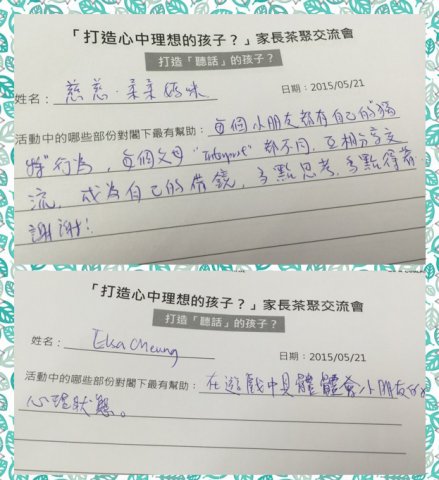 「打造心中理想的孩子?」家長茶聚交流會
打造「聽話」的孩子?
姓名: 慈慈．柔柔媽咪 日期: 2015/05/21
活動中的哪些部份對閣下最有幫助: 每個小朋友都有自己的"獨
特"行為, 每個父母 "Interpret" 都不同, 互相分享交
流, 成為自己的借鏡, 多點思考, 多點得着.
謝謝!
「打造心中理想的孩子?」家長茶聚交流會
打造「聽話」的孩子?
姓名: Elsa Cheung 日期: 2015/05/21
活動中的哪些部份對閣下最有幫助: 在遊戲中具體體會小朋友的
心理狀態。